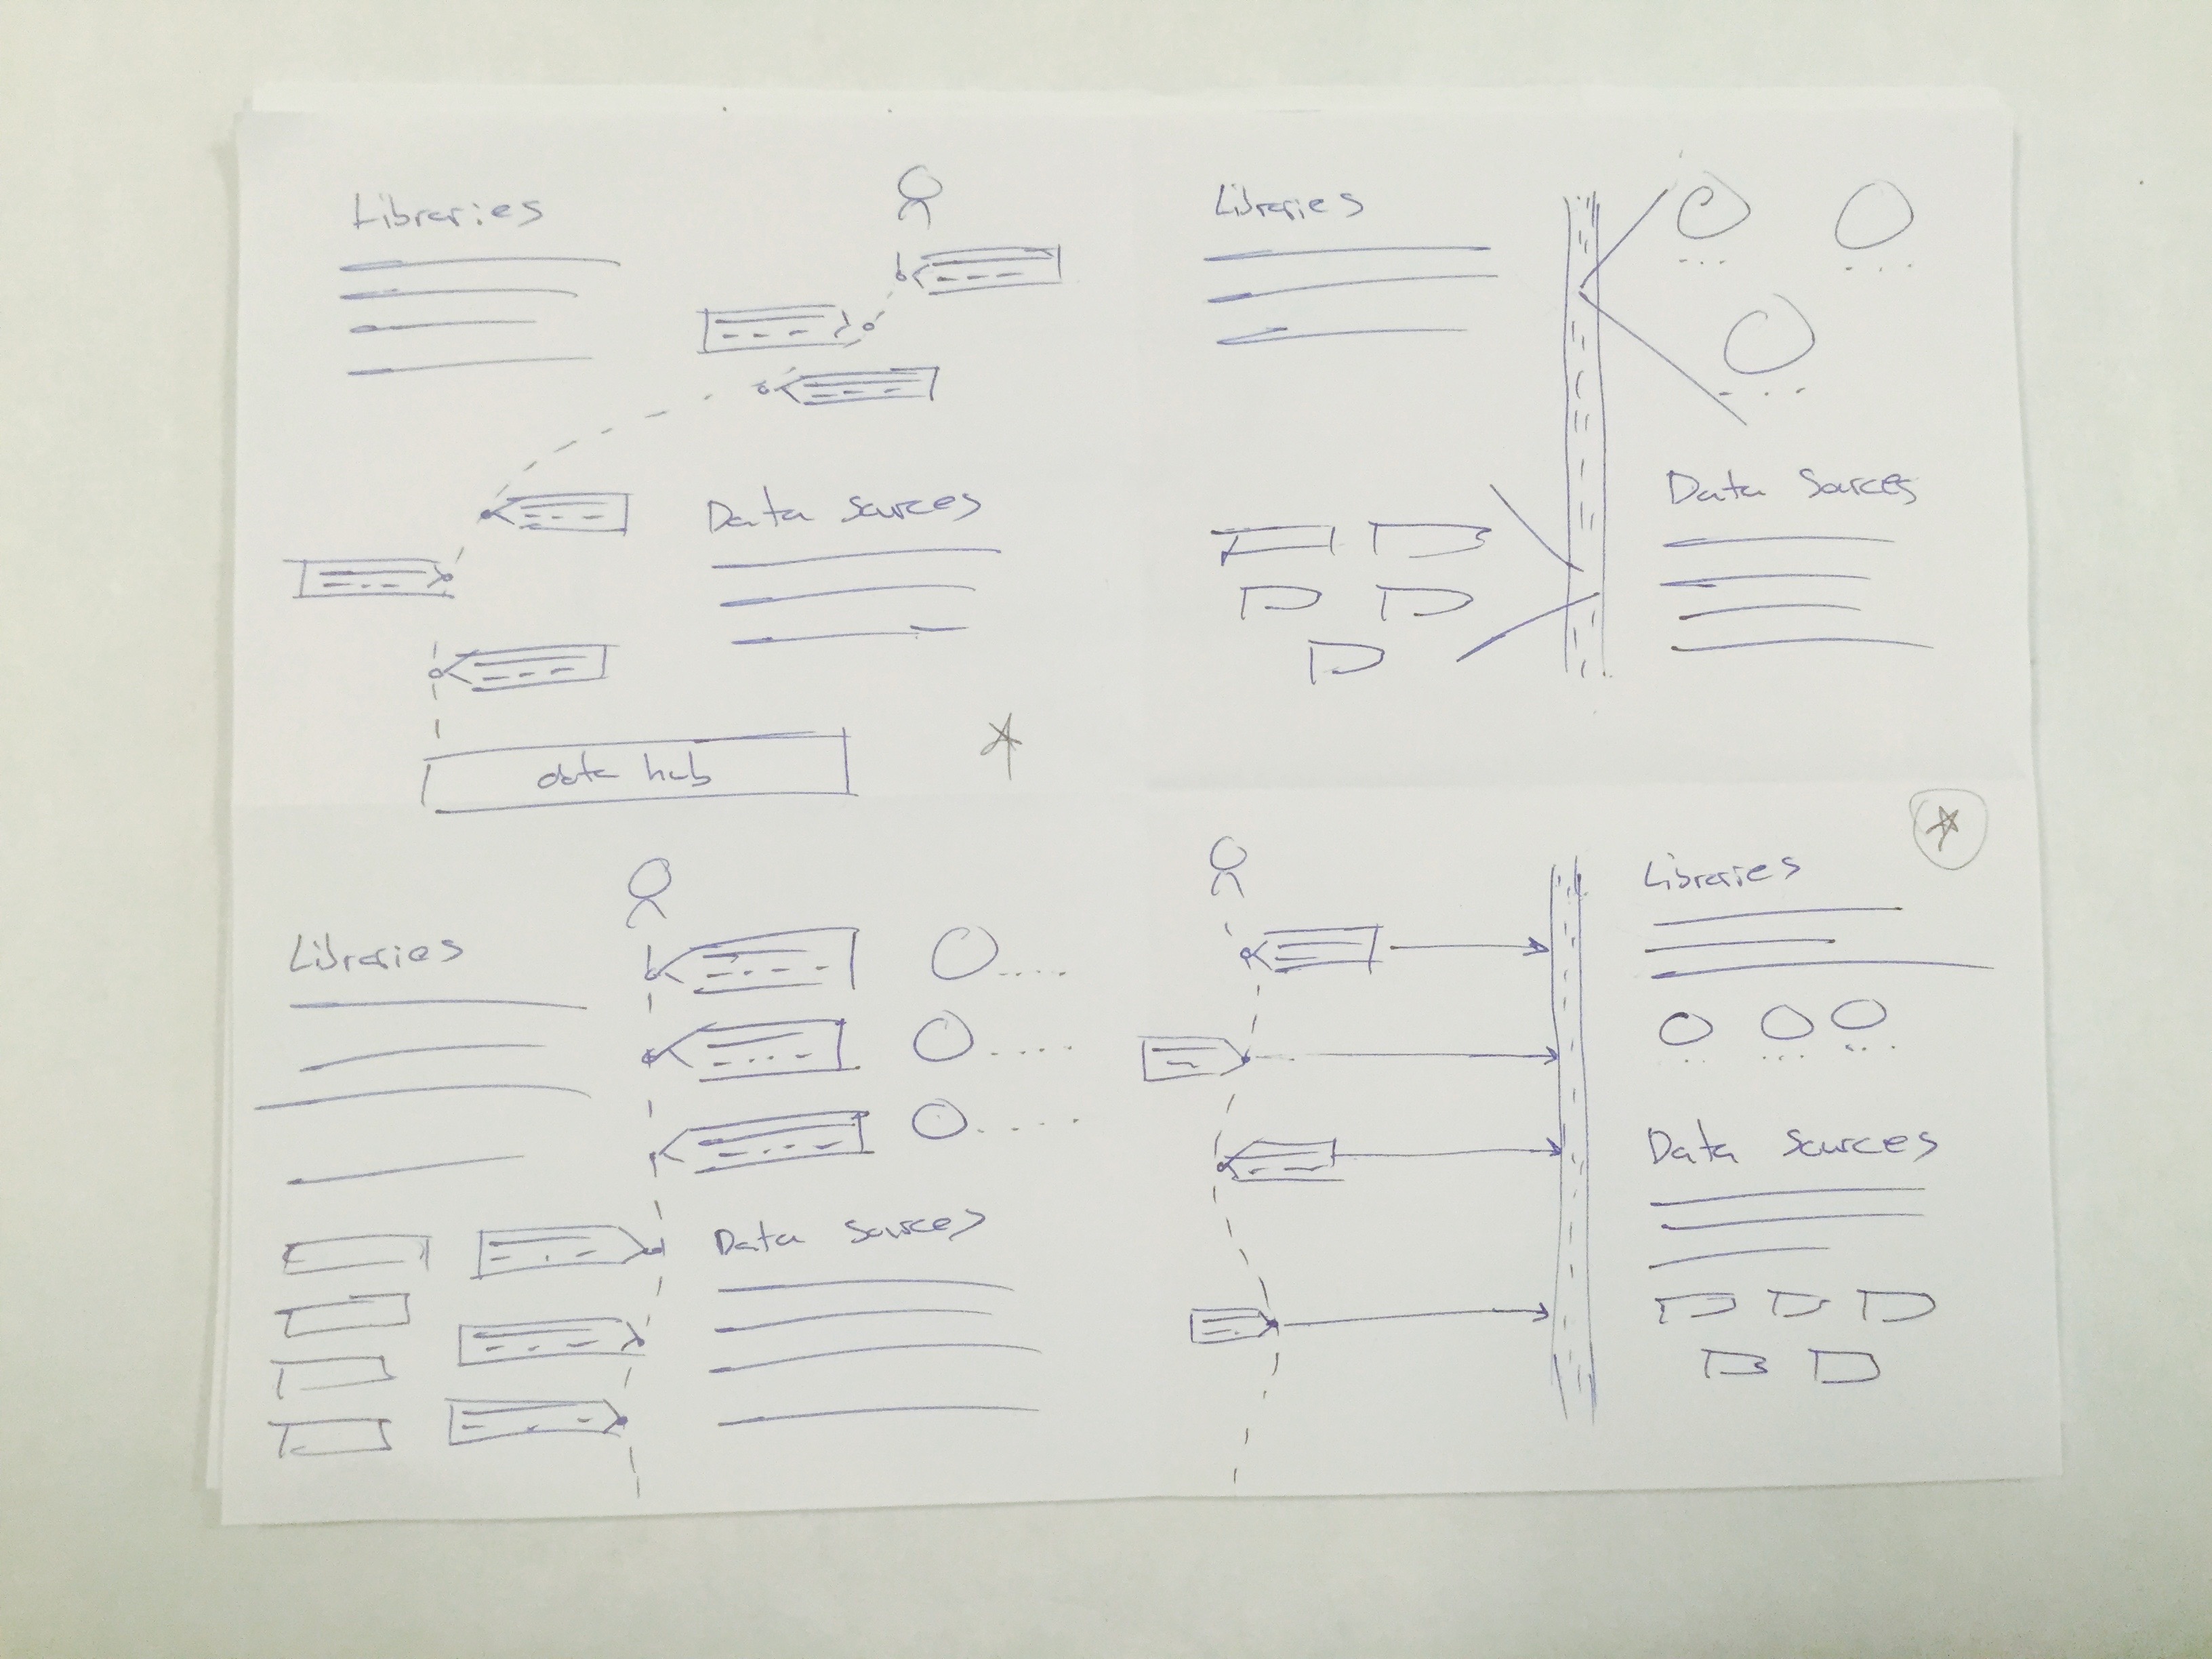 Libraries
Data Sources
data hub
Libraries
Data Sources
Libraries
Data Sources
Libraries
Data Sources